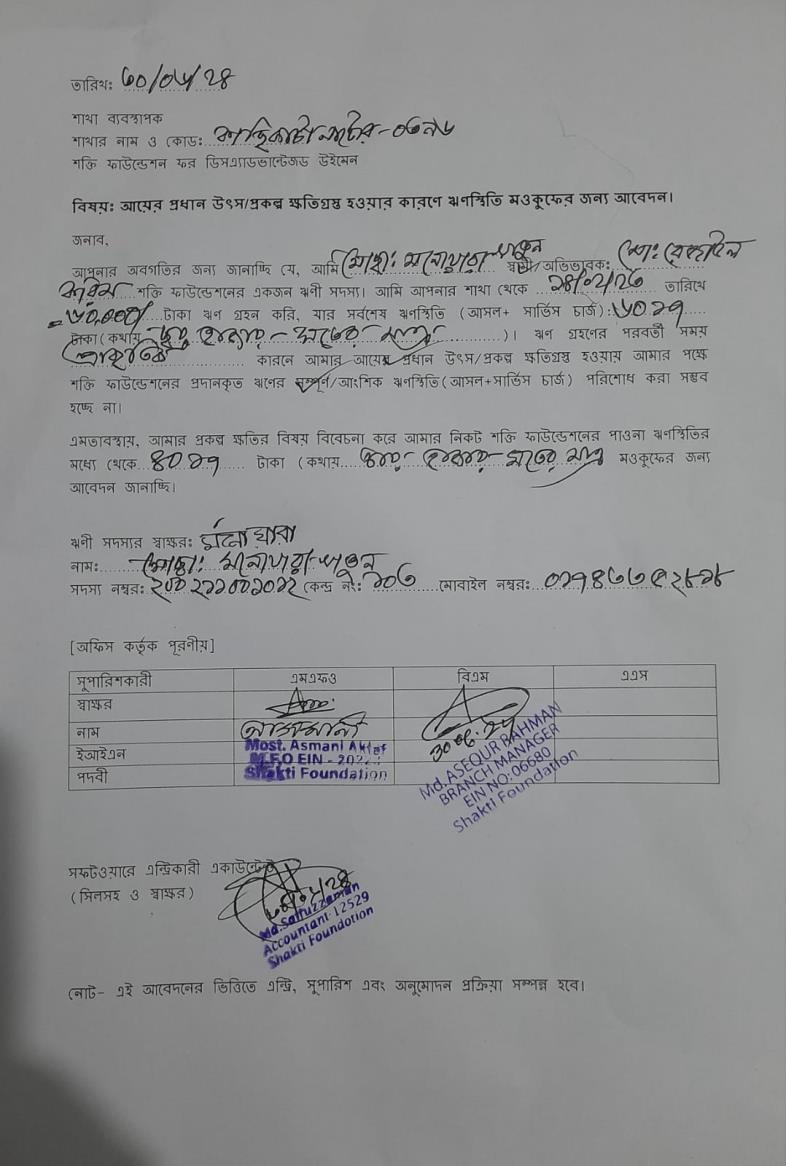 তারিখ: ৩০/০৬/২৪
শাখা ব্যবস্থাপক
শাখার নাম ও কোড:
শক্তি ফাউন্ডেশন ফর ডিসএ্যাডভান্টেজড উইমেন
বিষয়: আয়ের প্রধান উৎস/প্রকল্প ক্ষতিগ্রস্থ হওয়ার কারণে ঋণস্থিতি মওকুফের জন্য আবেদন।
জনাব,
আপনার অবগতির জন্য জানাচ্ছি যে, আমি মোছা: মনোয়ারা খাতুন স্বামী/অভিভাবক: মো:
শক্তি ফাউন্ডেশনের একজন ঋণী সদস্য। আমি আপনার শাখা থেকে ২৪/০২/২৩ তারিখে
টাকা ঋণ গ্রহন করি, যার সর্বশেষ ঋণস্থিতি (আসল+ সার্ভিস চার্জ):
টাকা (কথায় হাজার সতের মাত্র )। ঋণ গ্রহণের পরবর্তী সময়
প্রাকৃতিক কারনে আমার আয়ের প্রধান উৎস/প্রকল্প ক্ষতিগ্রস্ত হওয়ায় আমার পক্ষে
শক্তি ফাউন্ডেশনের প্রদানকৃত ঋণের সম্পূর্ণ/আংশিক ঋণস্থিতি(আসল+সার্ভিস চার্জ) পরিশোধ করা সম্ভব
হচ্ছে না।
এমতাবস্থায়, আমার প্রকল্প ক্ষতির বিষয় বিবেচনা করে আমার নিকট শক্তি ফাউন্ডেশনের পাওনা ঋণস্থিতির
মধ্যে থেকে ৪০১৭ টাকা (কথায় চার হাজার সতের মাত্র মওকুফের জন্য
আবেদন জানাচ্ছি।
ঋণী সদস্যর স্বাক্ষর: মনোয়ারা
নাম: মোছা: মনোয়ারা খাতুন
সদস্য নম্বর: (কেন্দ্র নং: ১০৩ মোবাইল নম্বর:
[অফিস কর্তৃক পূরণীয়]
সুপারিশকারী এমএফও বিএম এএস
স্বাক্ষর
নাম আসমানী 30.06.24
ইআইএন Most. Asmani Akter
M.F.O EIN -
পদবী Shakti Foundation
Md. ASEQUR RAHMAN
BRANCH MANAGER
EIN NO: 06680
Shakti Foundation
সফটওয়ারে এন্ট্রিকারী একাউন্টেন্ট
(সিলসহ ও স্বাক্ষর)
Md. Saifuzzaman
Accountant-12529
Shakti Foundation
নোট- এই আবেদনের ভিত্তিতে এন্ট্রি, সুপারিশ এবং অনুমোদন প্রক্রিয়া সম্পন্ন হবে।